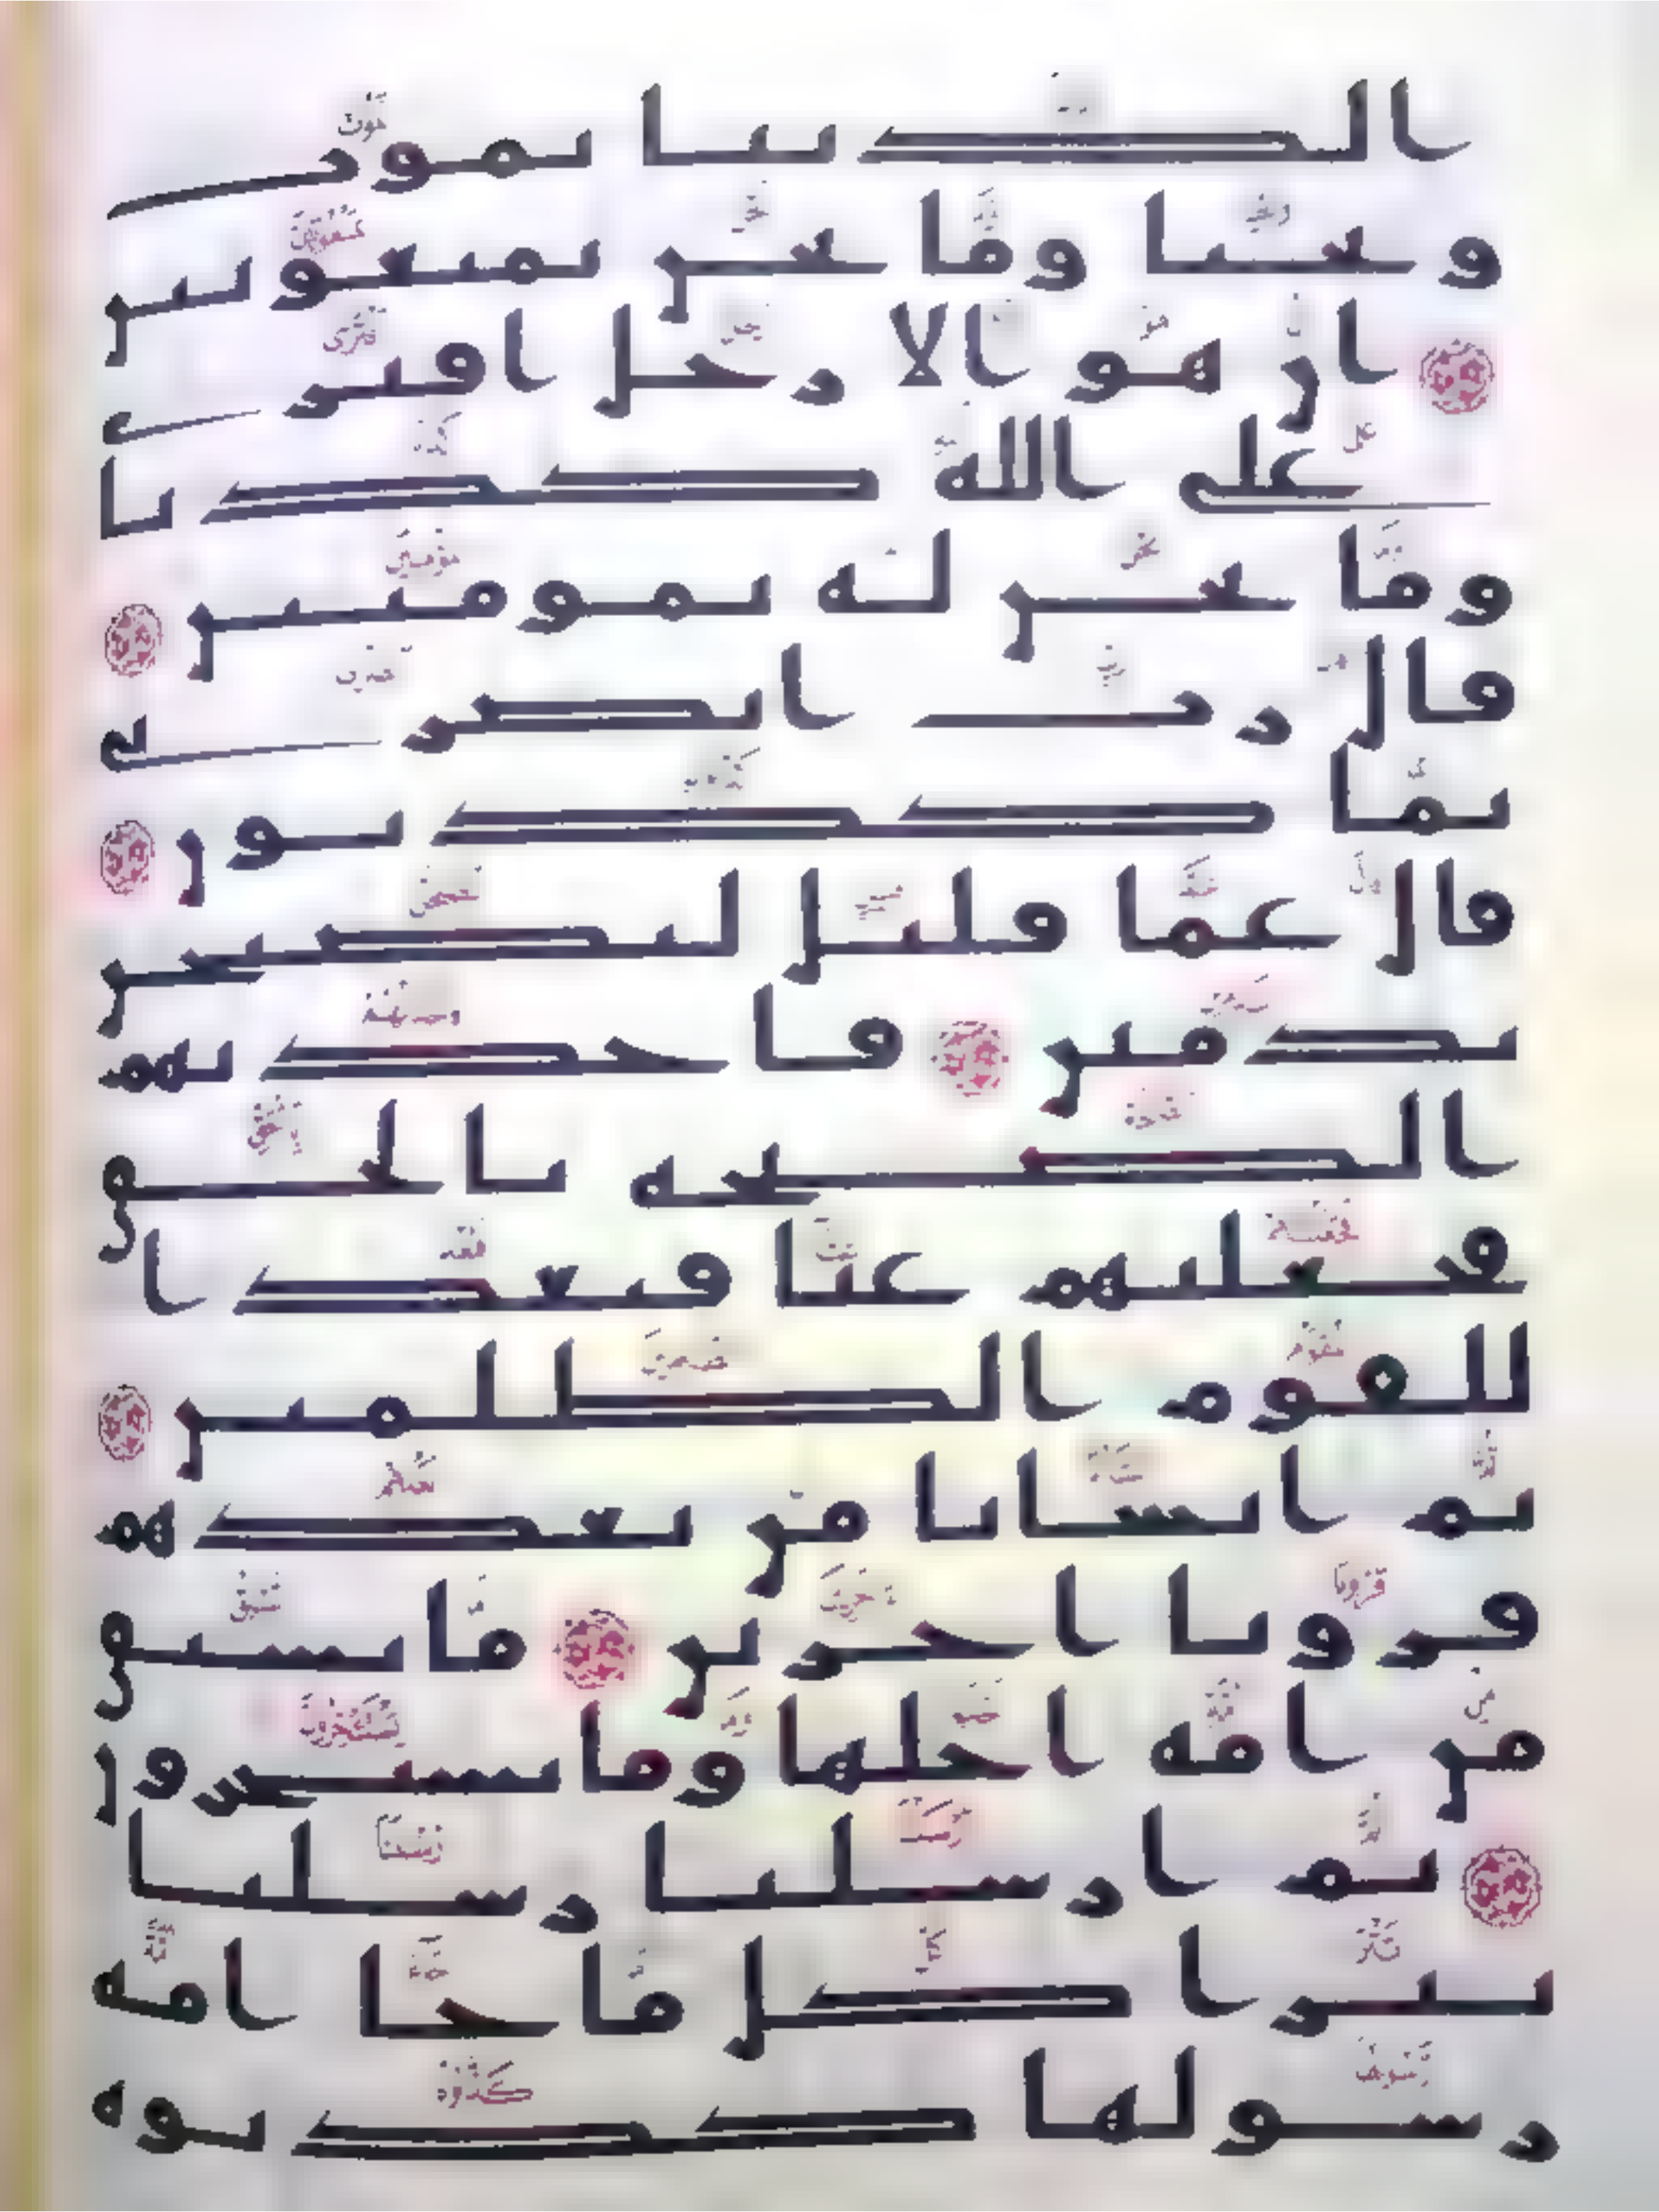 الدنيا نموت
ونحيا وما نحن بمبعوثين
ان هو الا رجل افترى
على الله كذبا
وما نحن له بمومنين
قال رب انصرني
بما كذبون
قال عما قليل ليصبحن
ندمين فاخذتهم
الصيحة بالحق
فجعلنهم غثا فبعدا
للقوم الظلمين
ثم انشانا من بعدهم
قرونا اخرين ما تسبق
من امة اجلها وما يستخرون
ثم ارسلنا رسلنا
تترا كل ما جا امة
رسولها كذبوه